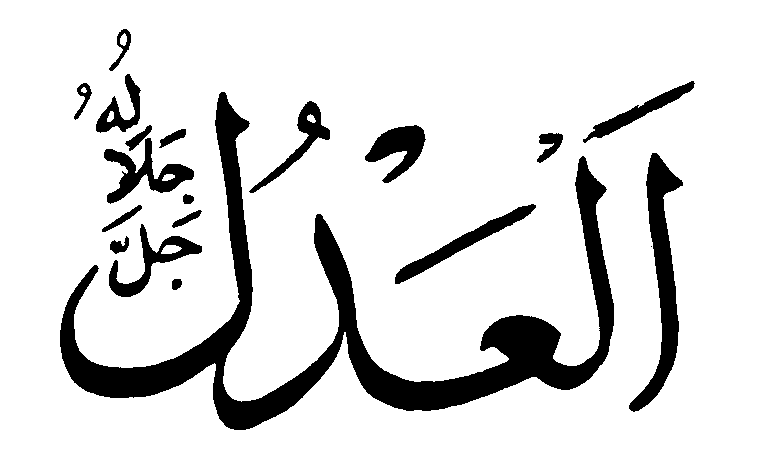 اَلْعَدْلُ
جَلَّ جَلَالُهُ